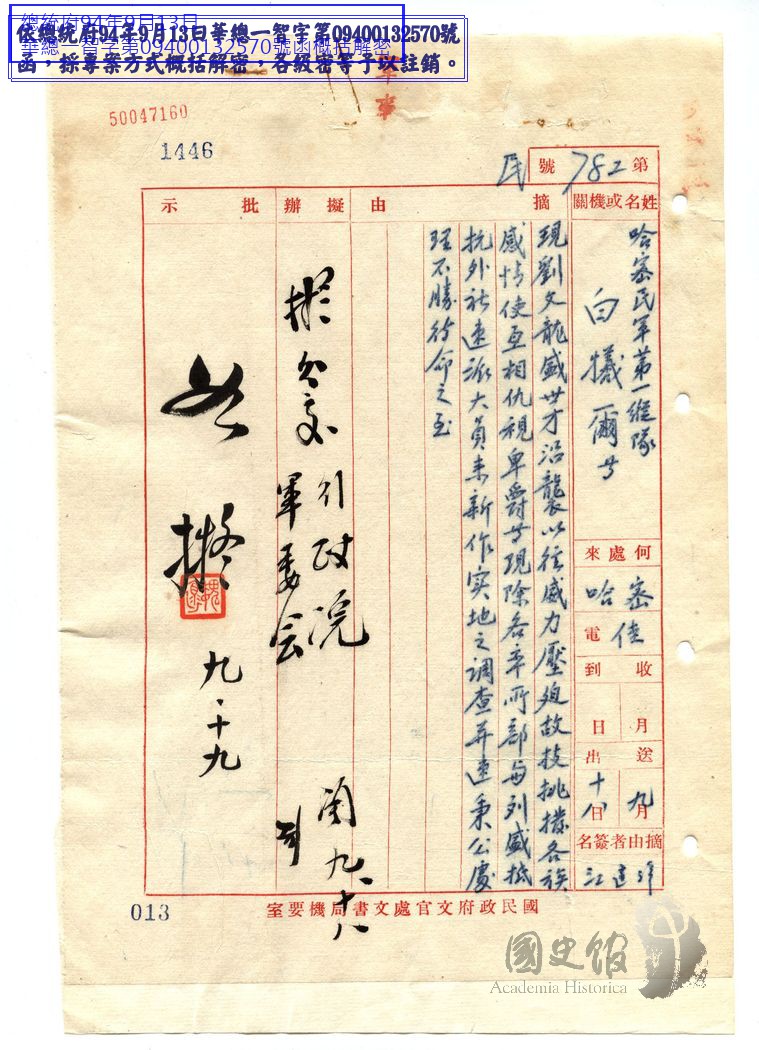 總統府94年9月13日
華總一智字第09400132570號函概括解密
依總統府94年9月13日華總一智字第09400132570號
函，採專案方式概括解密，各級密等予以註銷。
軍事
50047160
1446
第782號
民
姓名或機關
哈密民軍第一縱隊
白犧爾等
何處來
哈密
電
佳
收到
月
日
送出
九月
十八日
摘由者簽名
摘由
現劉文龍盛世才沿襲以往威力壓迫故技挑撥各族
感情使互相仇視卑爵等現除各率所部與列盛抵
抗外祈速派大員來新作實地之調查并速秉公處
理不勝待命之至
擬辦
擬分交行政院
軍委會
九、十八
批示
如擬
九·十九
國民政府文官處文書局機要室
013
國史館
Academia Historica